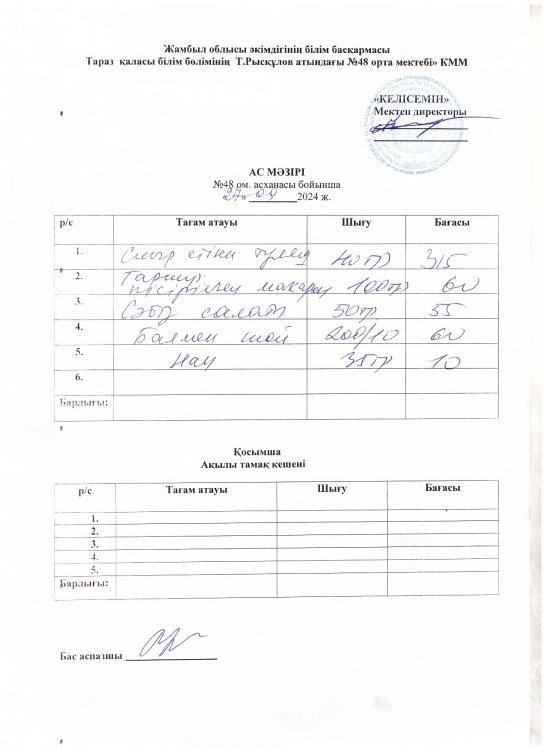 Жамбыл облысы әкімдігінің білім басқармасы
Тараз қаласы білім бөлімінің Т.Рысқұлов атындағы №48 орта мектебі» КММ
«КЕЛІСЕМІН»
Мектеп директоры
АС МӘЗІРІ
№48 ом. асханасы бойынша
«27» 09 2024 ж.
р/с Тағам атауы Шығу Бағасы
1. Сиыр етінен 40гр 315
2. Гарнир:
пісірілген макарон 100гр 60
3. Сәбіз салат 50гр 55
4. Балмен шай 200/10 60
5. Нан 35гр 10
6.
Барлығы:
Қосымша
Ақылы тамақ кешені
р/с Тағам атауы Шығу Бағасы
1.
2.
3.
4.
5.
Барлығы:
Бас аспазшы